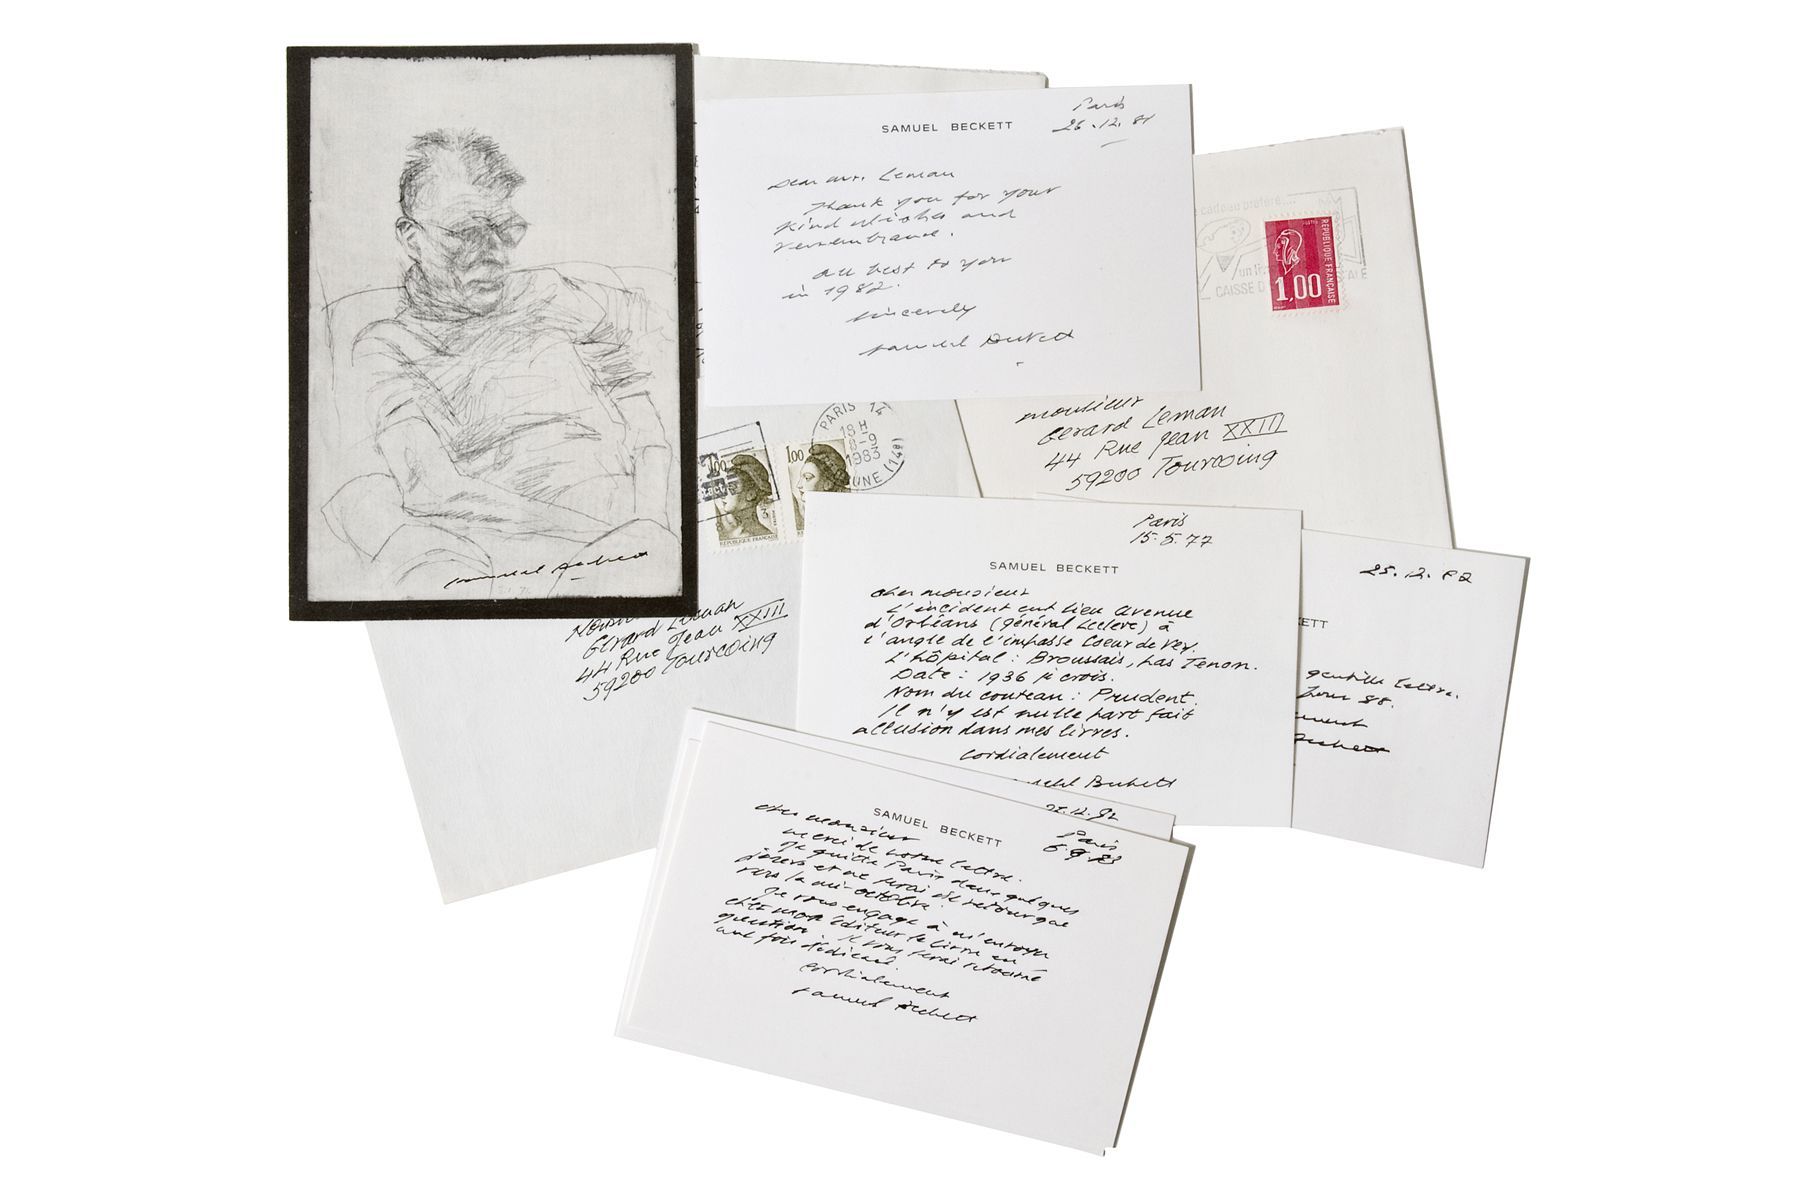 Samuel Beckett
SAMUEL BECKETT
Paris
26.12.81
Dear Mr. Leman
Thank you for your
kind wishes and
remembrance.
All best to you
in 1982.
Sincerely
Samuel Beckett
cadeau préféré....
CAISSE D
POSTES
REPUBLIQUE FRANÇAISE
1,00
Monsieur
Gérard Leman
44 Rue Jean XXIII
59200 Tourcoing
PARIS 14
18 H
8-9
1983
1,00
1,00
REPUBLIQUE FRANÇAISE
Gérard Leman
44 Rue Jean XXIII
59200 Tourcoing
Paris
15.5.77
SAMUEL BECKETT
Cher Monsieur
L'incident eut lieu avenue
d'Orléans (Général Leclerc) à
l'angle de l'impasse Coeur de Vey.
L'hôpital : Broussais, pas Tenon.
Date : 1936 je crois.
Nom du couteau : Prudent.
Il n'y est nulle part fait
allusion dans mes livres.
Cordialement
Samuel Beckett
25.12.
ETT
gentille lettre.
Beckett
SAMUEL BECKETT
Paris
Cher Monsieur
merci de votre lettre.
Je quitte Paris dans quelques
jours et ne serai de retour que
vers la mi-octobre.
Je vous engage à m'envoyer
chez mon éditeur le livre en
question. Il vous serai retourné
une fois dédicacé.
Cordialement
Samuel Beckett